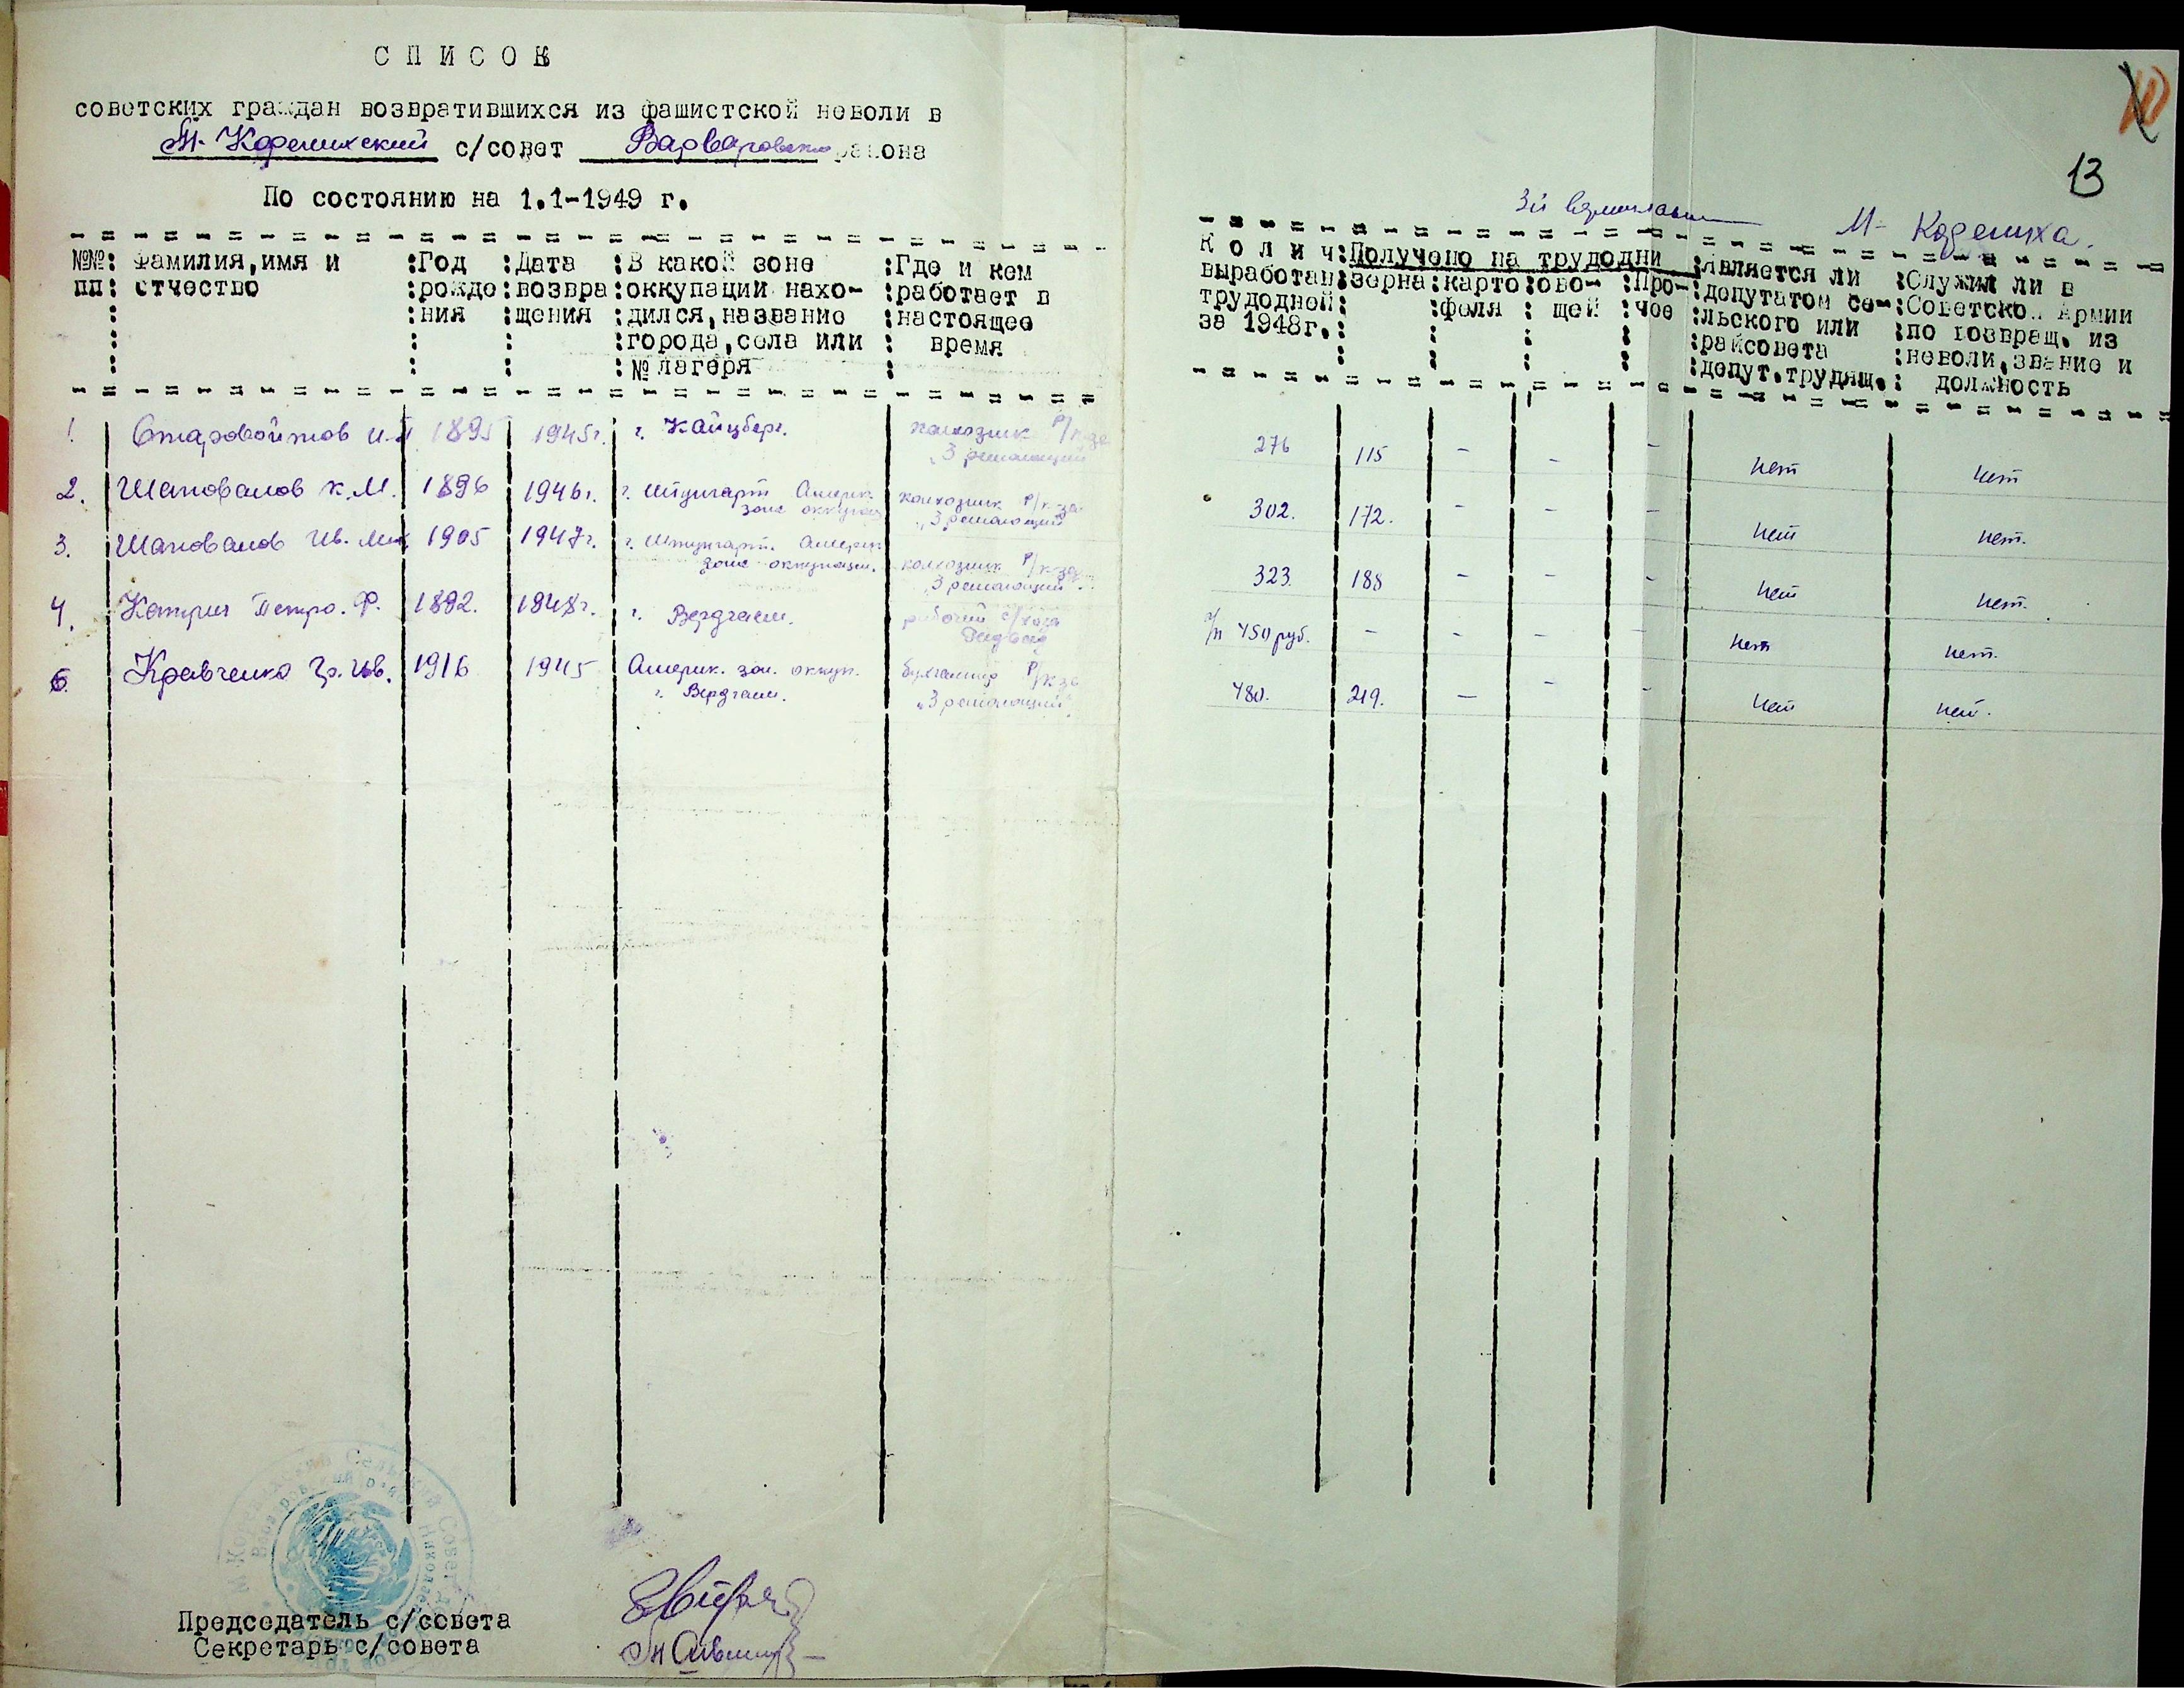 СПИСОК
советских граждан возвратившихся из фашистской неволи в
М-Коренихский с/совет Варваровского района
По состоянию на 1.1-1949 г.
13
М-Корениха.
№№ пп : Фамилия, имя и отчество : Год рождения : Дата возвращения : В какой зоне оккупации находился, название города, села или № лагеря : Где и кем работает в настоящее время
Колич выработан трудодней за 1948г. : Получено на трудодни : зерна : картофеля : овощей : Прочее : Является ли депутатом сельского или райсовета депут. трудящ. : Служил ли в Советской Армии по возвращ. из неволи, звание и должность
1. Старовойтов И. 1895 1945г. г. колхозник "3 решающий" 276 115 - - - нет нет
2. Шаповалов К.М. 1896 1946г. г. Штутгарт Америк. зона оккупац. колхозник "3 решающий" 302. 172. - - - нет нет.
3. Шаповалов Ив. Мих. 1905 1947г. г. Штутгарт. Америк. зона оккупации. колхозник "3 решающий" 323. 188 - - - нет нет.
4. Петро. Ф. 1892. 1948г. г. рабочий 450 руб. - - - - нет нет.
5. Кравченко Гр. Ив. 1916 1945 Америк. зон. оккуп. г. бухгалтер "3 решающий" 480. 219. - - - нет нет.
Председатель с/совета
Секретарь с/совета